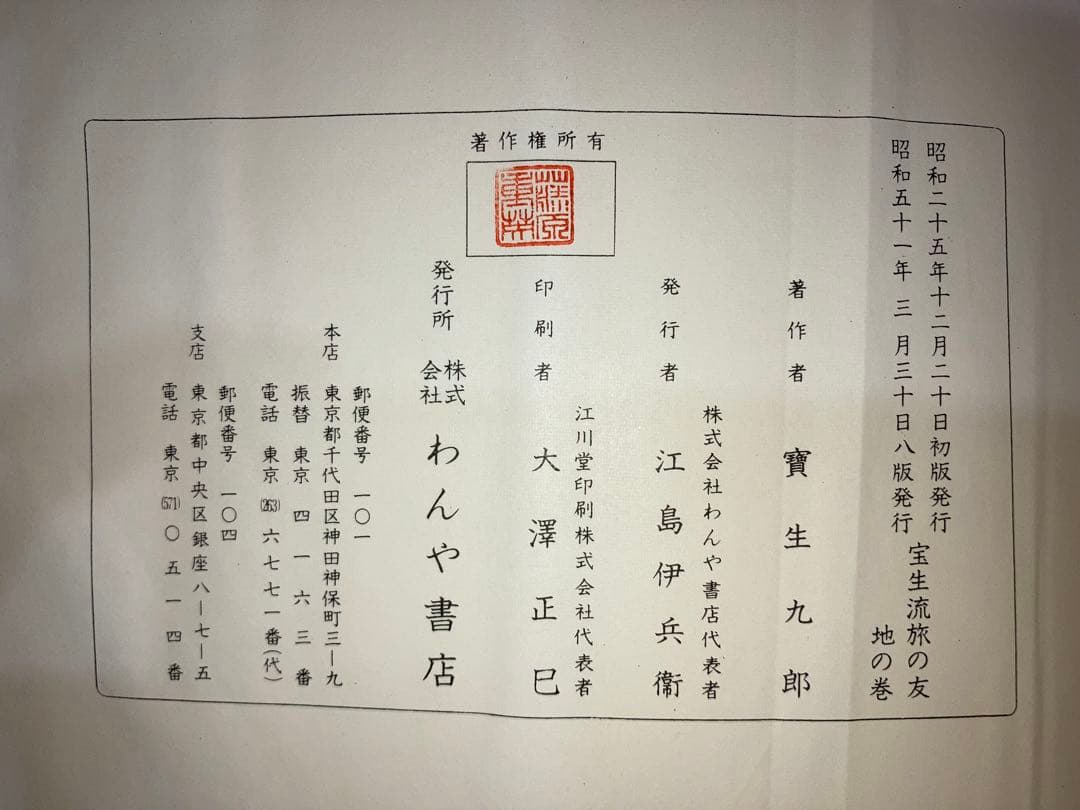 昭和二十五年十二月二十日初版発行
昭和五十一年三月三十日八版発行
宝生流旅の友
地の巻
著作権所有
著作者 寶生九郎
株式会社わんや書店代表者
発行者 江島伊兵衞
江川堂印刷株式会社代表者
印刷者 大澤正巳
発行所 株式会社 わんや書店
郵便番号 一〇一
本店 東京都千代田区神田神保町三ー九
振替 東京 四一六三番
電話 東京(263)六七七一番(代)
郵便番号 一〇四
支店 東京都中央区銀座八ー七ー五
電話 東京(571)〇五一四番